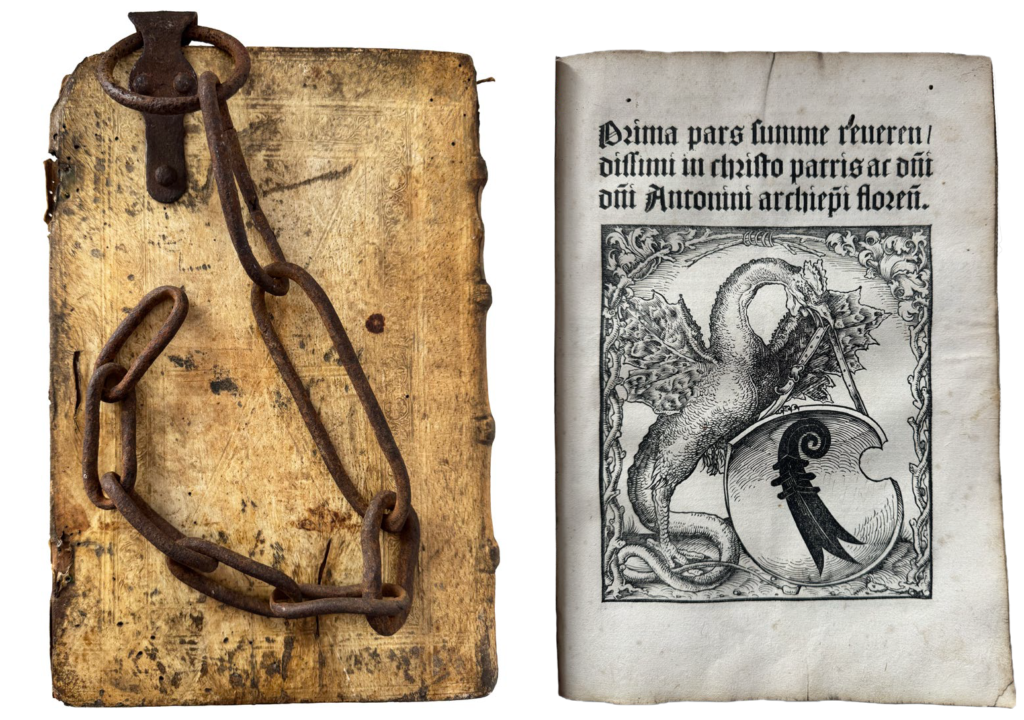 Prima pars summe reueren/
dissimi in christo patris ac dn̄i
dn̄i Antonini archiep̄i floren̄.